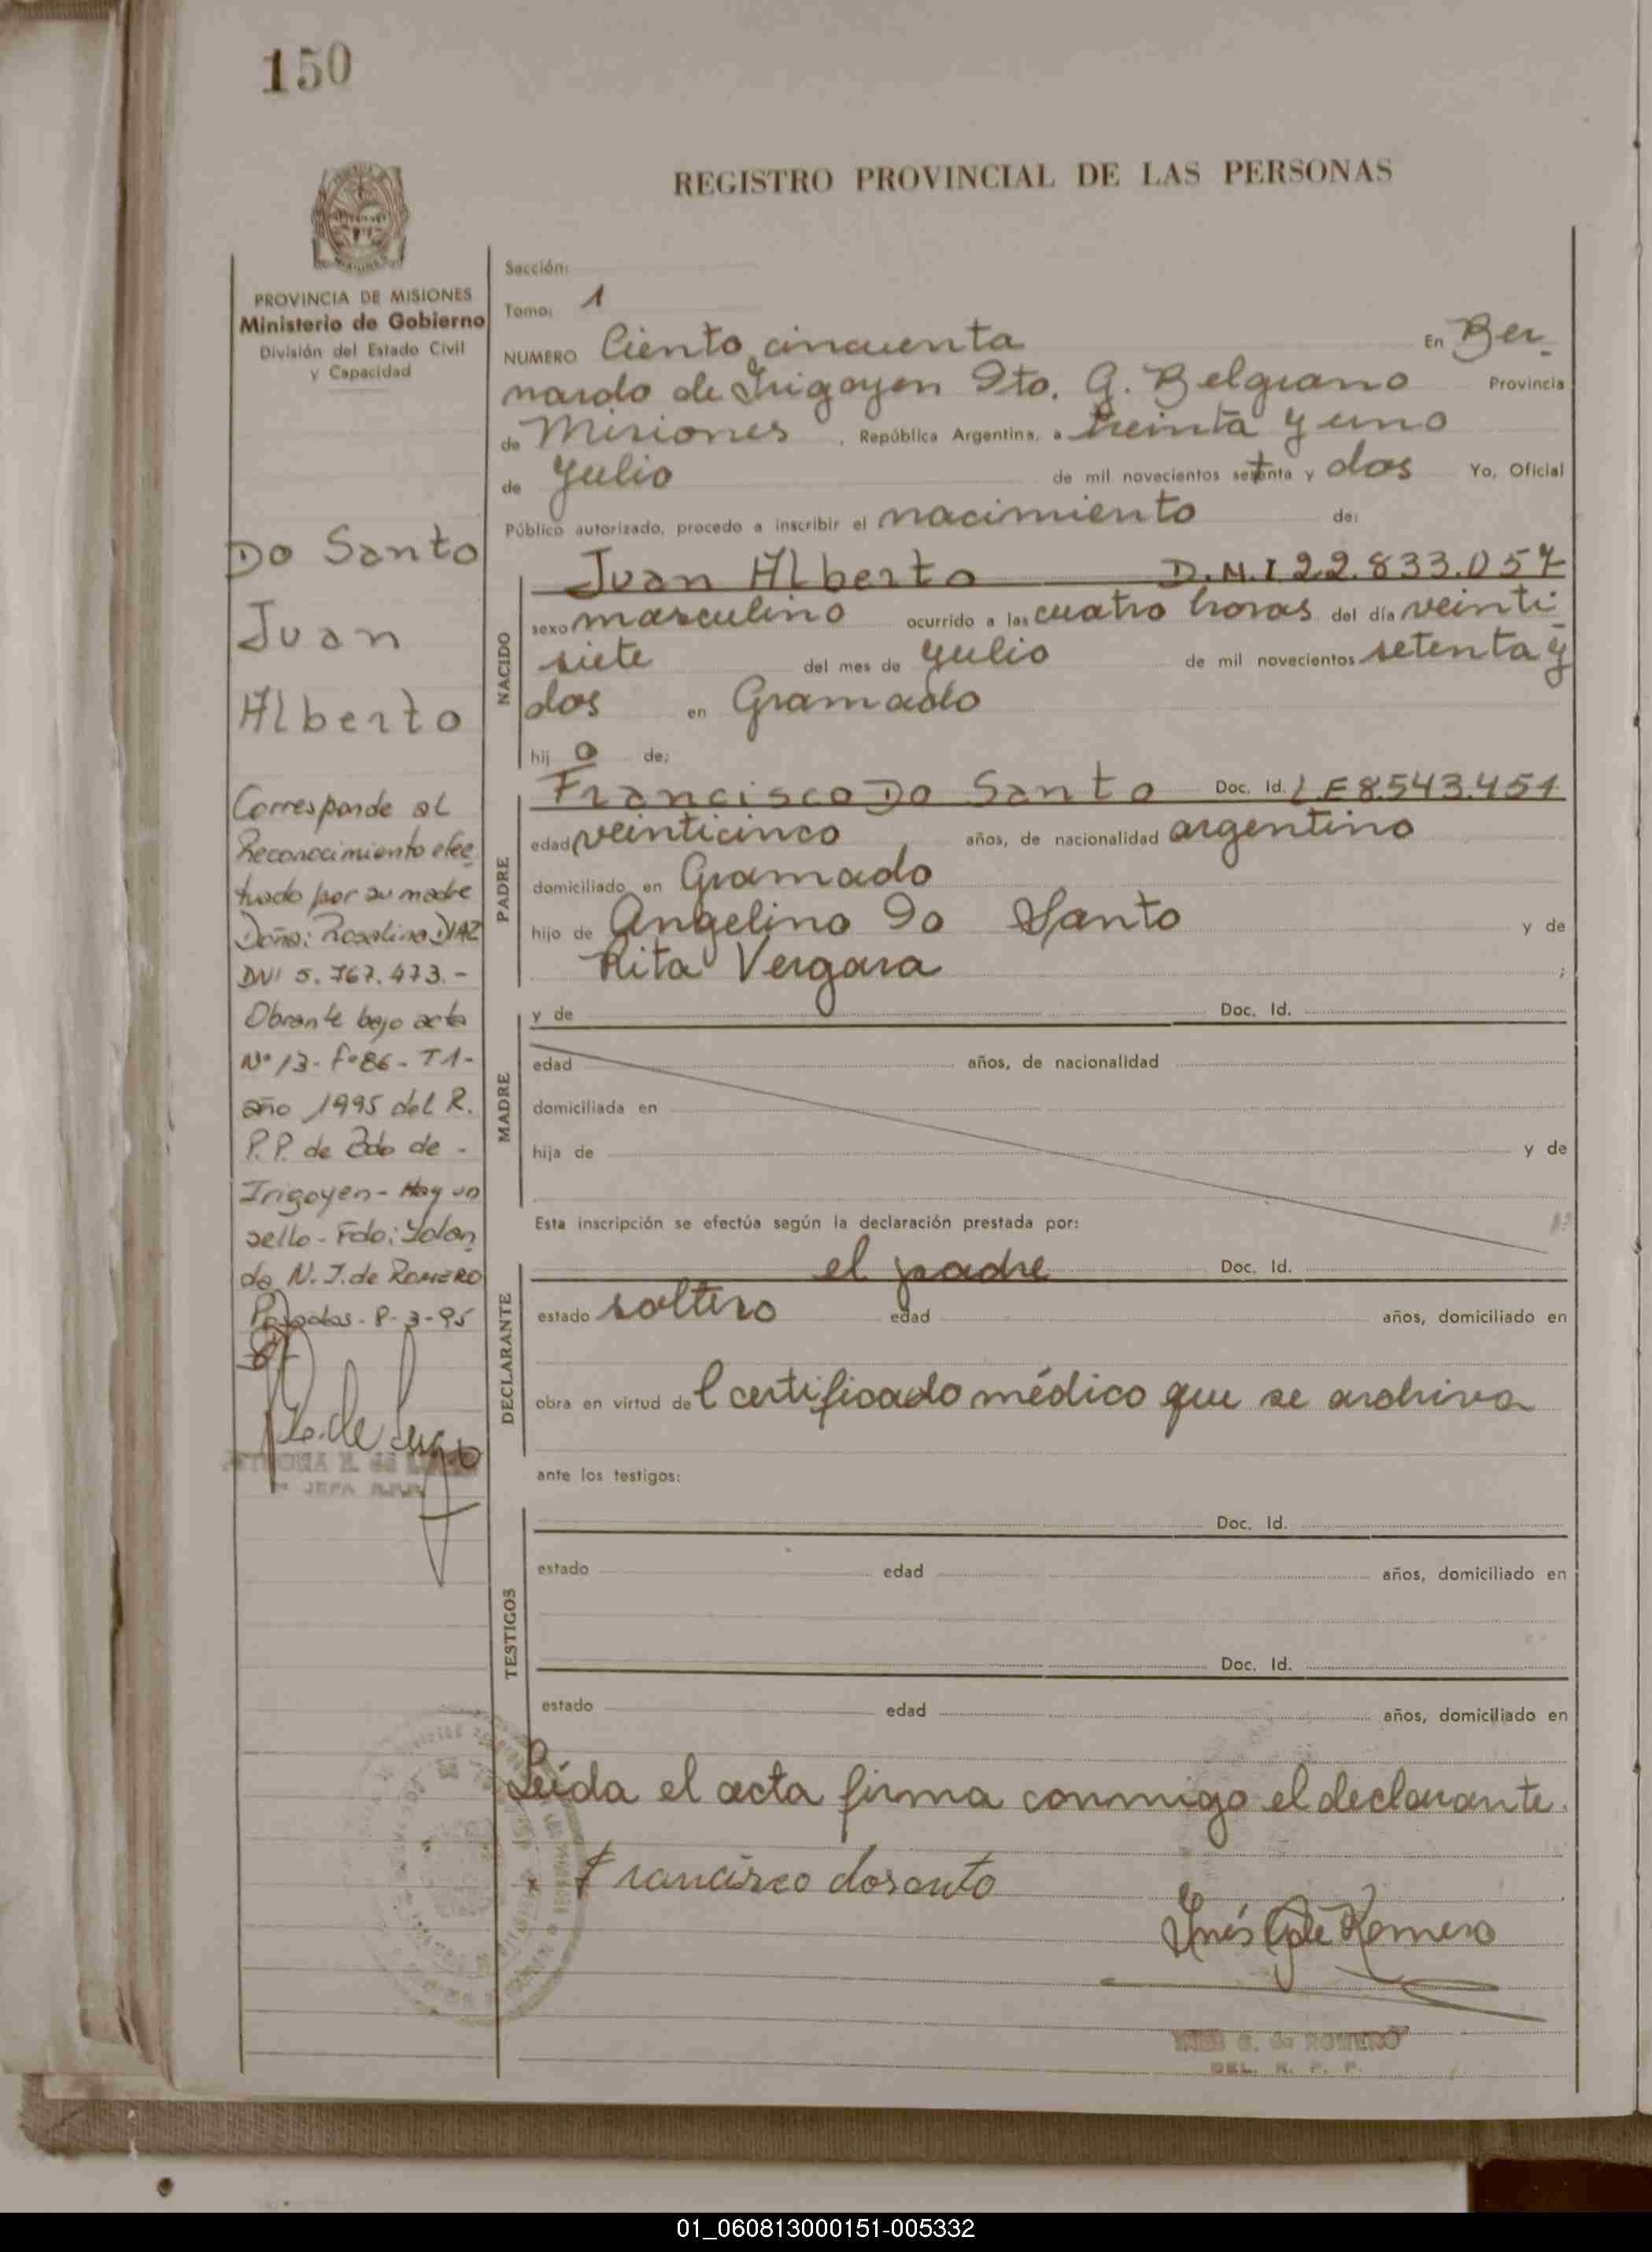 150
REGISTRO PROVINCIAL DE LAS PERSONAS
PROVINCIA DE MISIONES
Ministerio de Gobierno
División del Estado Civil
y Capacidad
Do Santo
Juan
Alberto
Corresponde al
Reconocimiento efec
tuado por su madre
Doña: Rosalina DIAZ
DNI 5.767.473.-
Obrante bajo acta
Nº 13- Fº 86- T1-
año 1995 del R.
P.P. de Bdo de -
Irigoyen- Hay un
sello- Fdo: Yolan
da N. J. de ROMERO
Posadas- 8-3-95
JEFA
Sección:
Tomo: 1
NUMERO Ciento cincuenta En Ber-
nardo de Irigoyen Dto. G. Belgrano Provincia
de Misiones, República Argentina, a treinta y uno
de Julio de mil novecientos setenta y dos Yo, Oficial
Público autorizado, procedo a inscribir el nacimiento de:
NACIDO
Juan Alberto D.N.I 22.833.057
sexo masculino ocurrido a las cuatro horas del día veinti
siete del mes de Julio de mil novecientos setenta y
dos en Gramado
hij o de:
PADRE
Francisco Do Santo Doc. Id. LE 8.543.451
edad veinticinco años, de nacionalidad argentino
domiciliado en Gramado
hijo de Angelino Do Santo y de
Rita Vergara ;
MADRE
y de Doc. Id.
edad años, de nacionalidad
domiciliada en
hija de y de
Esta inscripción se efectúa según la declaración prestada por:
DECLARANTE
el padre Doc. Id.
estado soltero edad años, domiciliado en
obra en virtud del certificado médico que se archiva
ante los testigos:
TESTIGOS
Doc. Id.
estado edad años, domiciliado en
Doc. Id.
estado edad años, domiciliado en
Leída el acta firma conmigo el declarante.
Francisco dosanto
Inés G de Romero
INES G. de ROMERO
DEL. R. P. P.
01_060813000151-005332